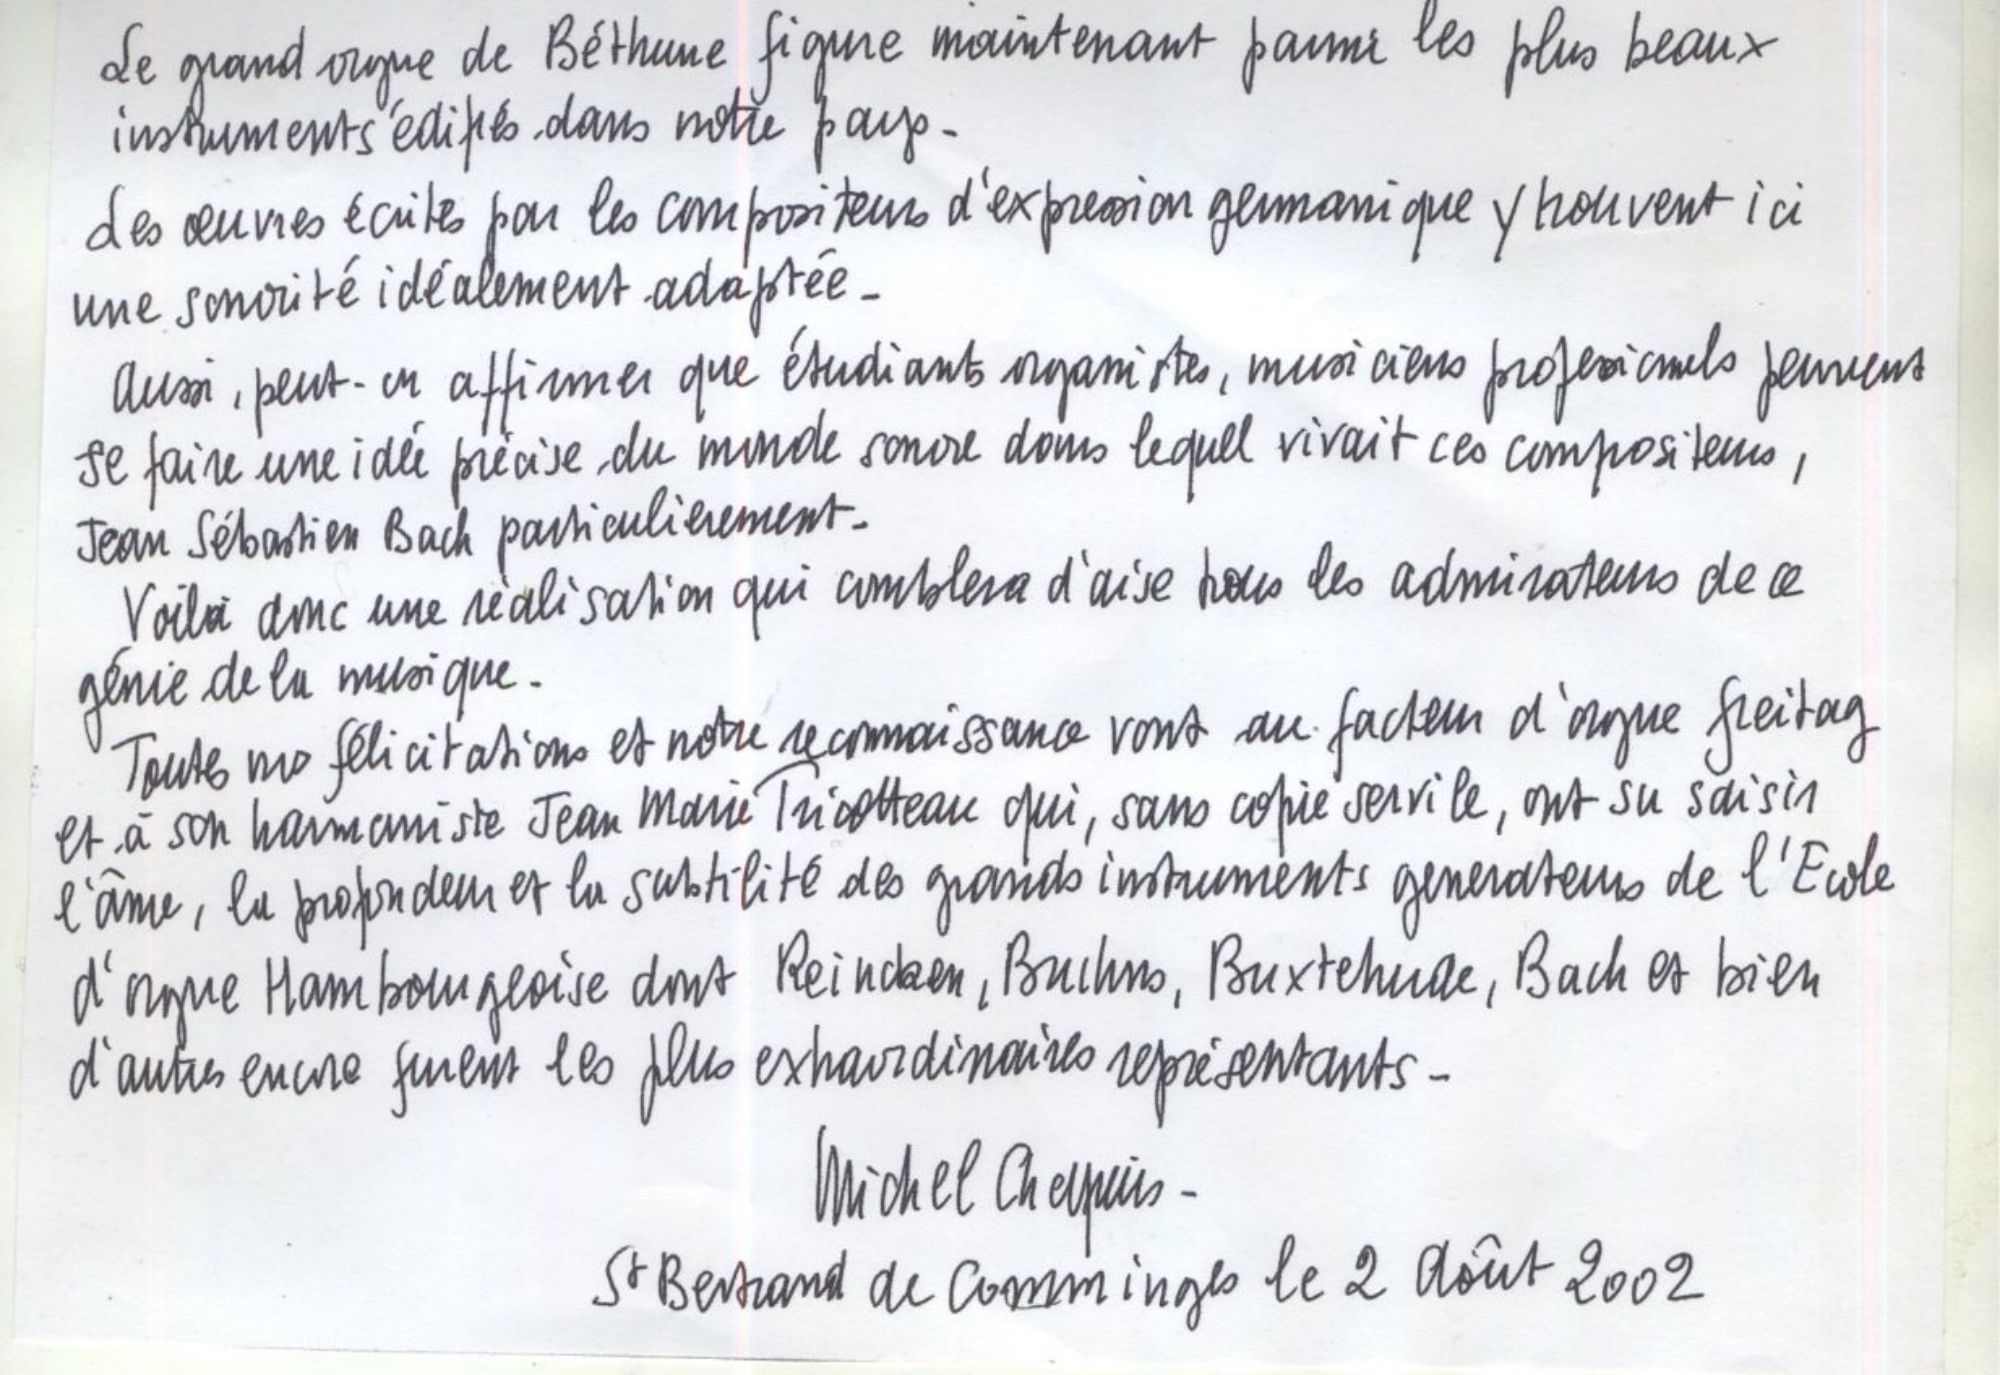 Le grand orgue de Béthune figure maintenant parmi les plus beaux
instruments édifiés dans notre pays -
Les œuvres écrites par les compositeurs d'expression germanique y trouvent ici
une sonorité idéalement adaptée -
Aussi, peut-on affirmer que étudiants organistes, musiciens professionnels peuvent
se faire une idée précise du monde sonore dans lequell vivait ces compositeurs,
Jean Sébastien Bach particulièrement -
Voilà donc une réalisation qui comblera d'aise tous les admirateurs de ce
génie de la musique -
Toutes mes félicitations et notre reconnaissance vont au facteur d'orgue Freitag
et à son harmoniste Jean Marie Tricotteau qui, sans copie servile, ont su saisir
l'âme, la profondeur et la subtilité des grands instruments generateurs de l'Ecole
d'orgue Hambourgeoise dont Reincken, Bruhns, Buxtehude, Bach et bien
d'autres encore furent les plus extraordinaires représentants -
Michel Chapuis -
St Bertrand de Comminges le 2 Aôût 2002